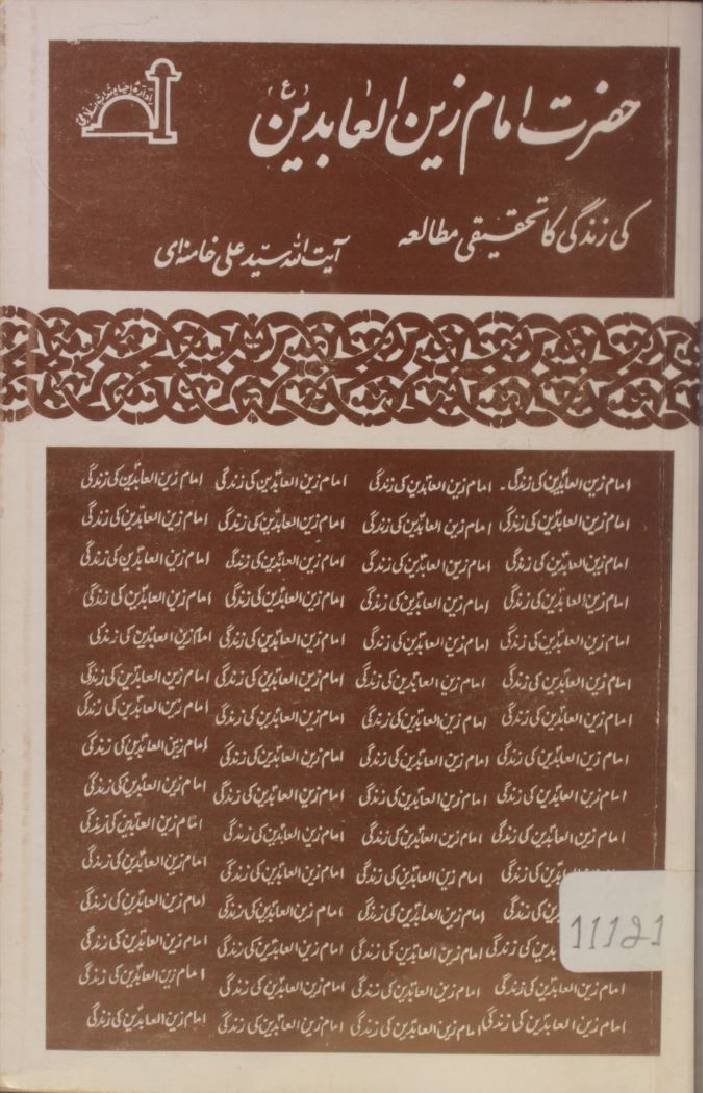 حضرت امام زین العابدینؑ
کی زندگی کا تحقیقی مطالعہ
آیت اللہ سید علی خامنہ ای
امام زین العابدین کی زندگی امام زین العابدین کی زندگی امام زین العابدین کی زندگی امام زین العابدین کی زندگی
امام زین العابدین کی زندگی امام زین العابدین کی زندگی امام زین العابدین کی زندگی امام زین العابدین کی زندگی
امام زین العابدین کی زندگی امام زین العابدین کی زندگی امام زین العابدین کی زندگی امام زین العابدین کی زندگی
امام زین العابدین کی زندگی امام زین العابدین کی زندگی امام زین العابدین کی زندگی امام زین العابدین کی زندگی
امام زین العابدین کی زندگی امام زین العابدین کی زندگی امام زین العابدین کی زندگی امام زین العابدین کی زندگی
امام زین العابدین کی زندگی امام زین العابدین کی زندگی امام زین العابدین کی زندگی امام زین العابدین کی زندگی
امام زین العابدین کی زندگی امام زین العابدین کی زندگی امام زین العابدین کی زندگی امام زین العابدین کی زندگی
امام زین العابدین کی زندگی امام زین العابدین کی زندگی امام زین العابدین کی زندگی امام زین العابدین کی زندگی
امام زین العابدین کی زندگی امام زین العابدین کی زندگی امام زین العابدین کی زندگی امام زین العابدین کی زندگی
امام زین العابدین کی زندگی امام زین العابدین کی زندگی امام زین العابدین کی زندگی امام زین العابدین کی زندگی
کی زندگی امام زین العابدین کی زندگی امام زین العابدین کی زندگی امام زین العابدین کی زندگی
کی زندگی امام زین العابدین کی زندگی امام زین العابدین کی زندگی امام زین العابدین کی زندگی
کی زندگی امام زین العابدین کی زندگی امام زین العابدین کی زندگی امام زین العابدین کی زندگی
امام زین العابدین کی زندگی امام زین العابدین کی زندگی امام زین العابدین کی زندگی امام زین العابدین کی زندگی
امام زین العابدین کی زندگی امام زین العابدین کی زندگی امام زین العابدین کی زندگی امام زین العابدین کی زندگی
11121